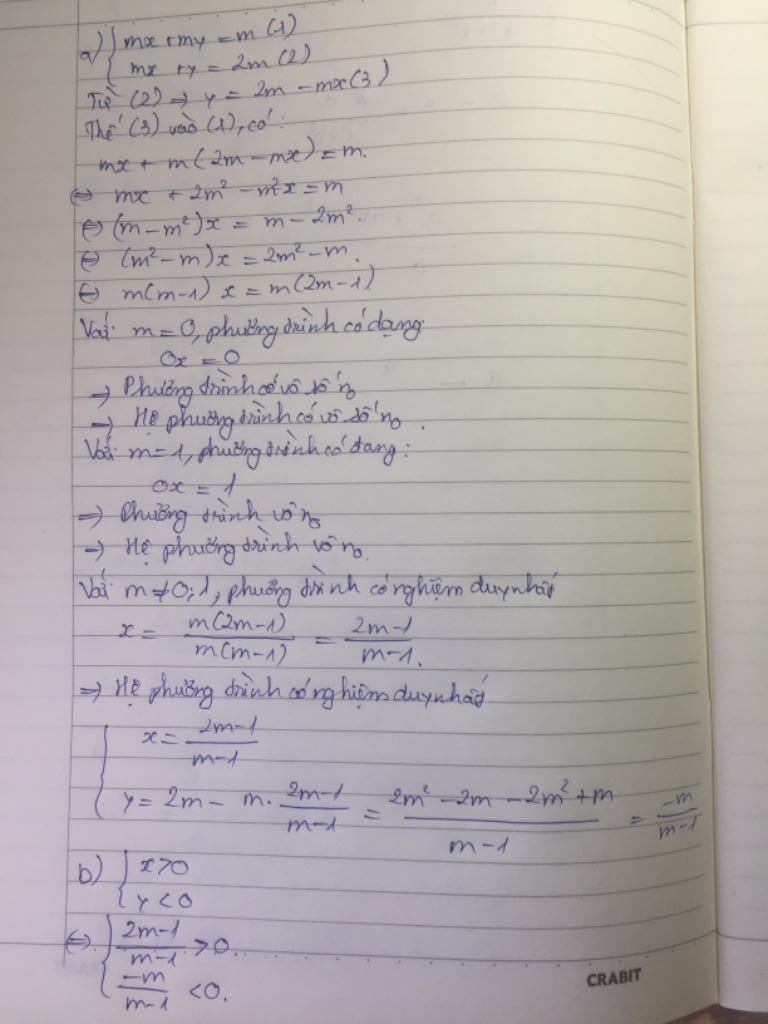 a) { mx + my = m (1)
mx + y = 2m (2)
Từ (2) ⇒ y = 2m - mx (3)
Thế (3) vào (1), có:
mx + m(2m - mx) = m.
⇔ mx + 2m² - m²x = m
⇔ (m - m²)x = m - 2m².
⇔ (m² - m)x = 2m² - m.
⇔ m(m-1) x = m(2m-1)
Với m = 0, phương trình có dạng
0x = 0
→ Phương trình có vô số n₀
→ Hệ phương trình có vô số n₀.
Với m = 1, phương trình có dạng:
0x = 1
⇒ Phương trình vô n₀
→ Hệ phương trình vô n₀.
Với m ≠ 0; 1, phương trình có nghiệm duy nhất
x = m(2m-1)/m(m-1) = 2m-1/m-1.
⇒ Hệ phương trình có nghiệm duy nhất
{ x = 2m-1/m-1
y = 2m - m. 2m-1/m-1 = 2m² - 2m - 2m² + m/m-1 = -m/m-1
b) { x > 0
y < 0
⇔ { 2m-1/m-1 > 0.
-m/m-1 < 0.
CRABIT